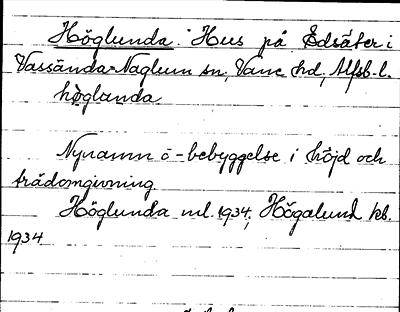 Höglunda. Hus på Edsäter i
Vassända-Naglum sn, Väne hd, Älfsb. l.
höglanda
Nynamn å -bebyggelse i höjd och
trädomgivning
Höglunda ml. 1934; Högalund kb.
1934